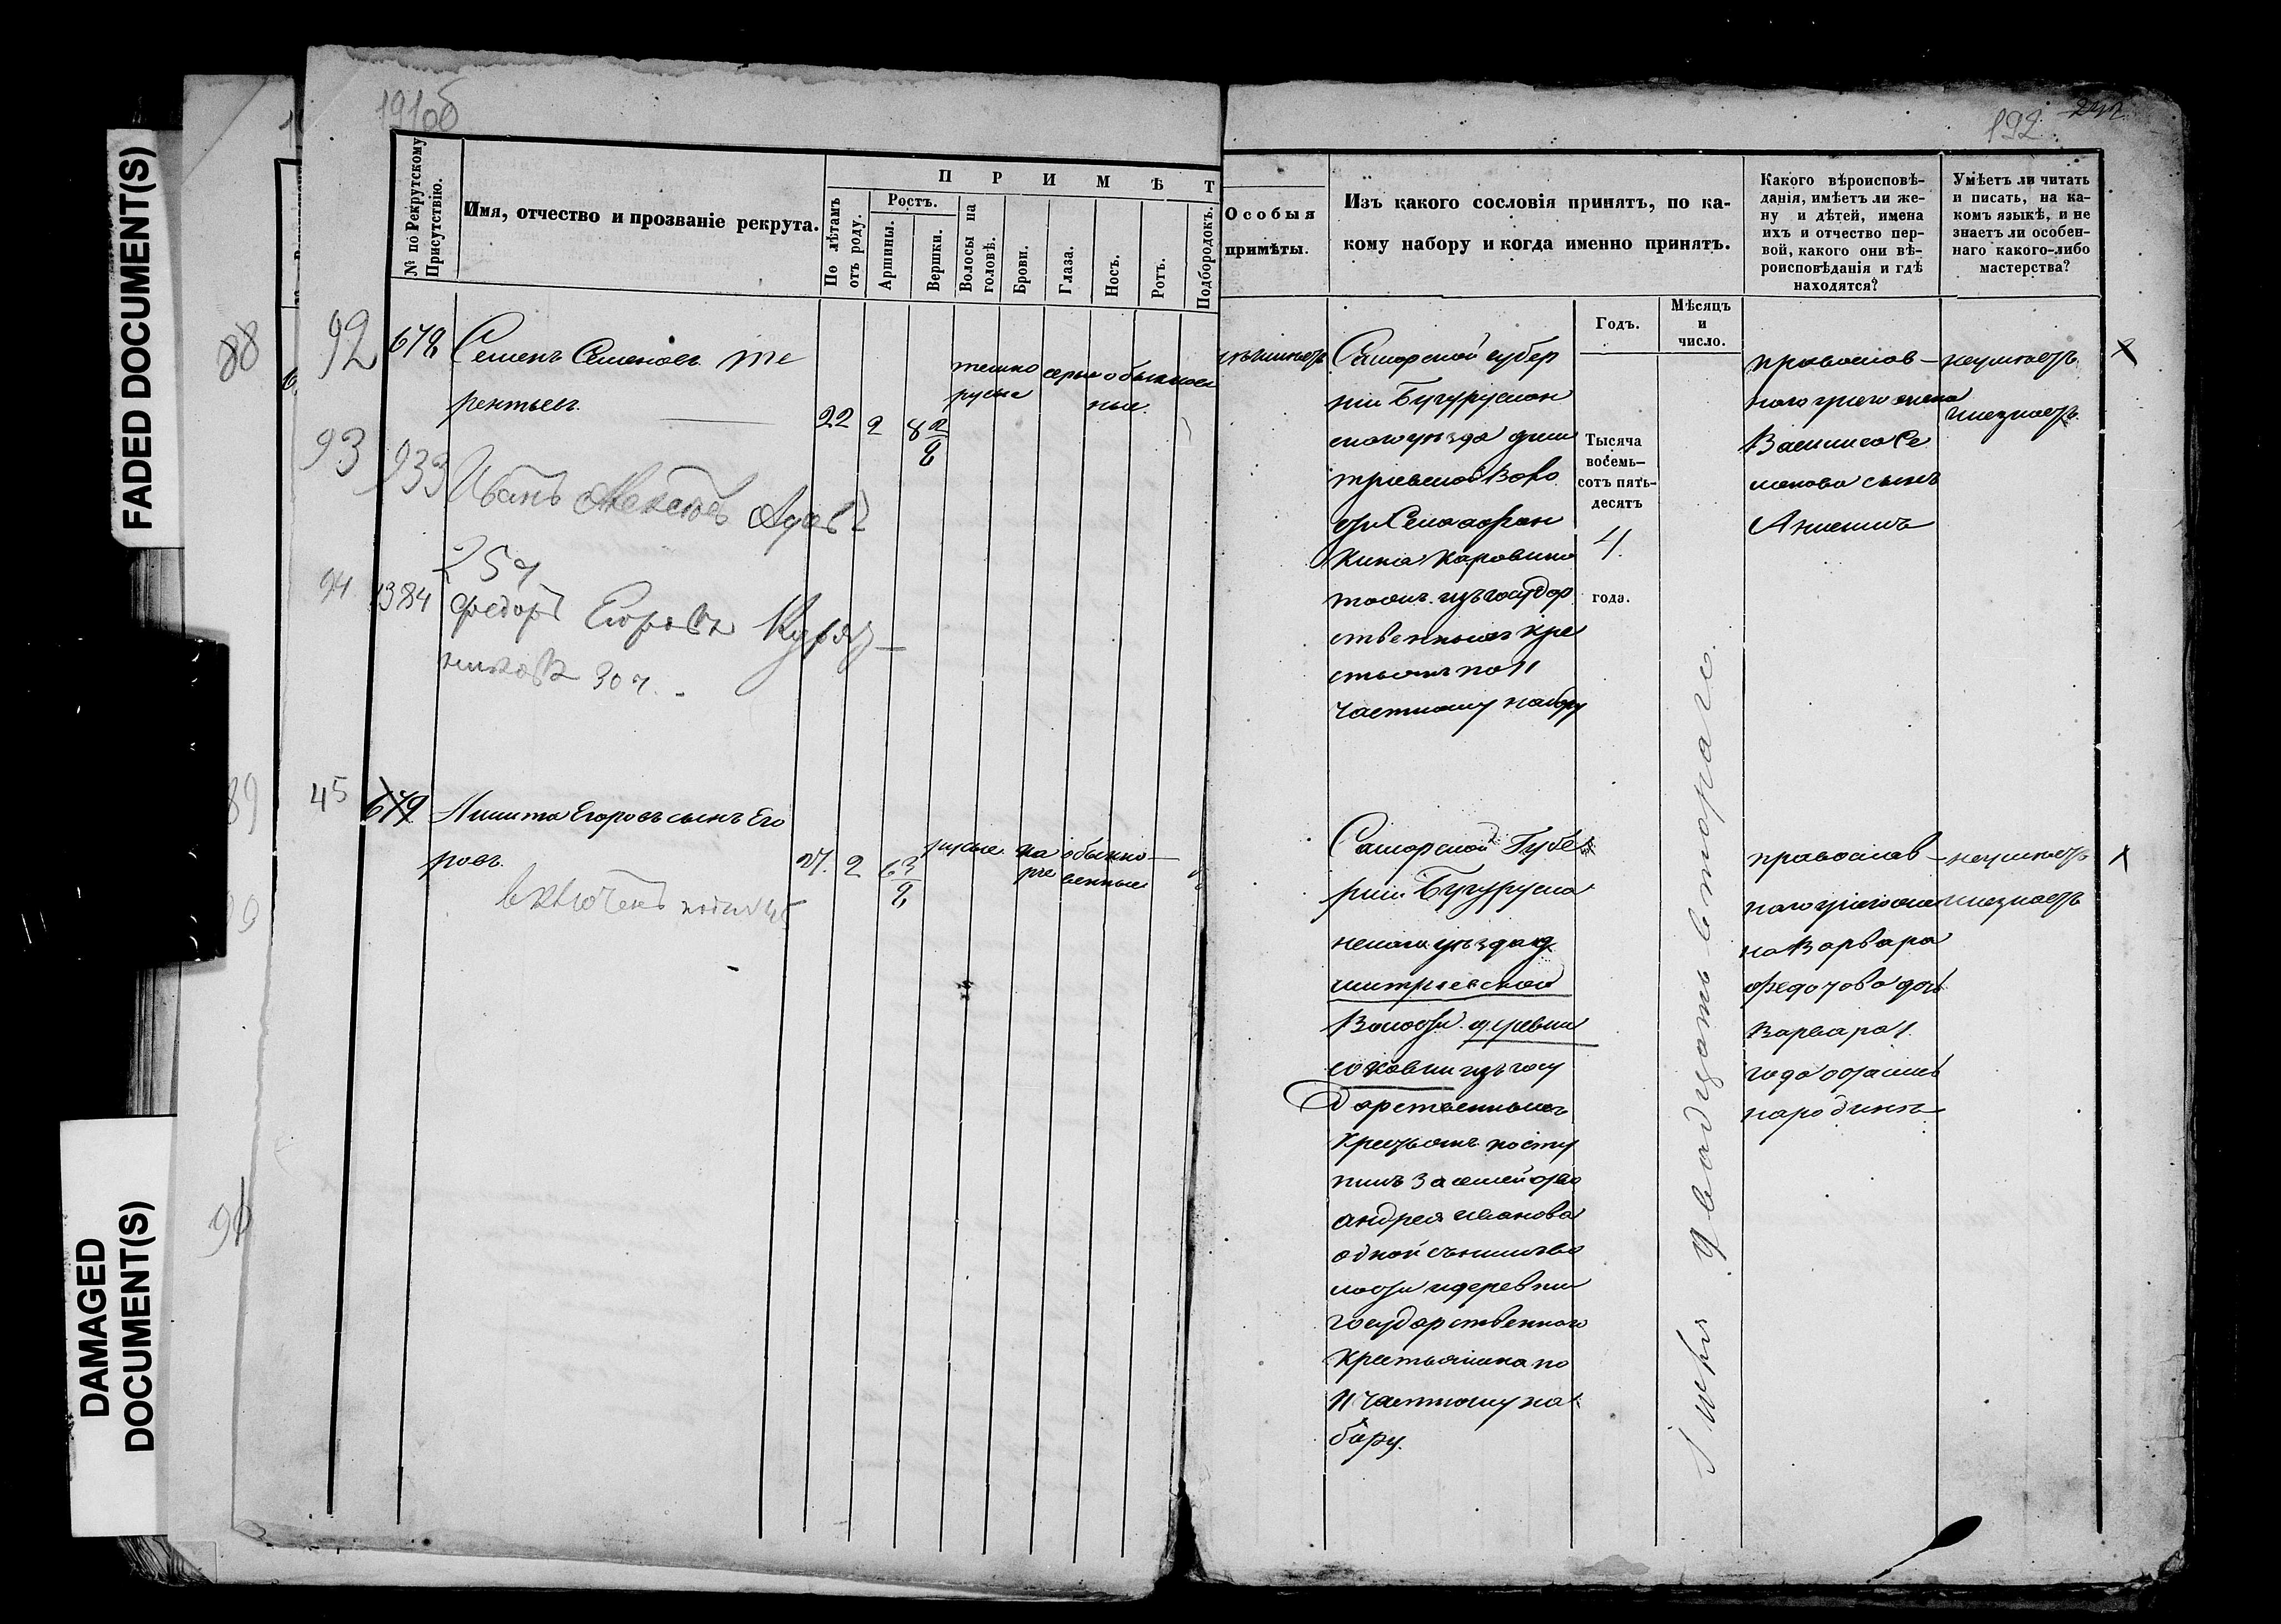 FADED DOCUMENT(S)
DAMAGED
DOCUMENT(S)
191об
192
№ по Рекрутскому
Присутствію.
Имя, отчество и прозваніе рекрута.
П Р И М Ѣ Т
По лѣтамъ
отъ роду.
Ростъ.
Аршины.
Вершки.
Волосы на
головѣ.
Брови.
Глаза.
Носъ.
Ротъ.
Подбородокъ.
Особыя
примѣты.
Изъ какого сословія принятъ, по ка-
кому набору и когда именно принятъ.
Годъ.
Мѣсяцъ
и
число.
Какого вѣроисповѣ-
данія, имѣетъ ли же-
ну и дѣтей, имена
ихъ и отчество пер-
вой, какого они вѣ-
роисповѣданія и гдѣ
находятся?
Умѣетъ ли читать
и писать, на ка-
комъ языкѣ, и не
знаетъ ли особен-
наго какого-либо
мастерства?
88
92
678
Семенъ Семеновъ Те
рентьевъ
22 2 8 2/8
темно
русые
серые обыкновен
ные
Самарской губер
ніи Бугуруслан
скаго уѣзда Дми
тріевской Воло
сти Села
изъ государ
ственныхъ кре
стьянъ по 11
частному набору
Тысяча
восемь-
сотъ пять-
десятъ
4.
года.
двадцать втораго.
православ-
наго у него жена
Василиса Се
менова сынъ
неумѣетъ
и незнаетъ
93 933 Иванъ
25 ч
94 1384 Федоръ Егоровъ
30 ч.
45 679 Никита Егоровъ сынъ Его
ровъ.
27. 2 6 3/8
русые
ка
рие
обыкно-
венные
включенъ подъ № 45
Самарской Губер
ніи Бугуруслa
нскаго уѣзда Д
митріевской
Волости деревни
изъ госу
дарственныхъ
Крестьянъ посту
пилъ за семейство
Андрея Иванова
одной съ нимъ во
лости и деревни
государственнаго
Крестьянина по
11 частному на
бору.
православ-
наго у него же
на Варвара
Федотова дочь
Варвара 1.
года остались
на родинѣ
неумѣетъ
и незнаетъ